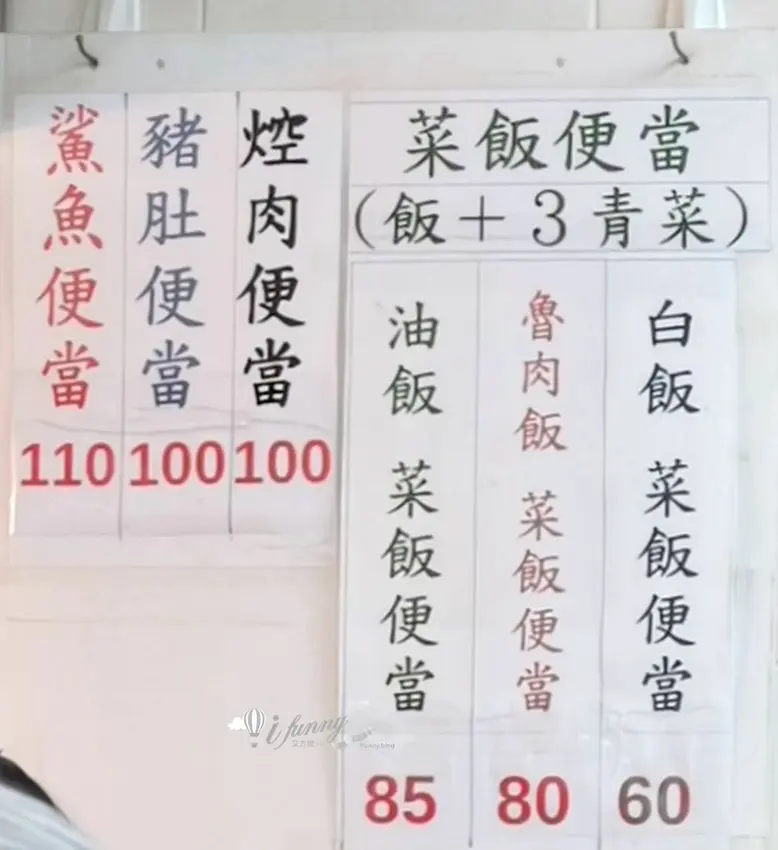 焢肉便當
100
豬肚便當
100
鯊魚便當
110
菜飯便當
(飯+3青菜)
白飯 菜飯便當
60
魯肉飯 菜飯便當
80
油飯 菜飯便當
85
ifunny